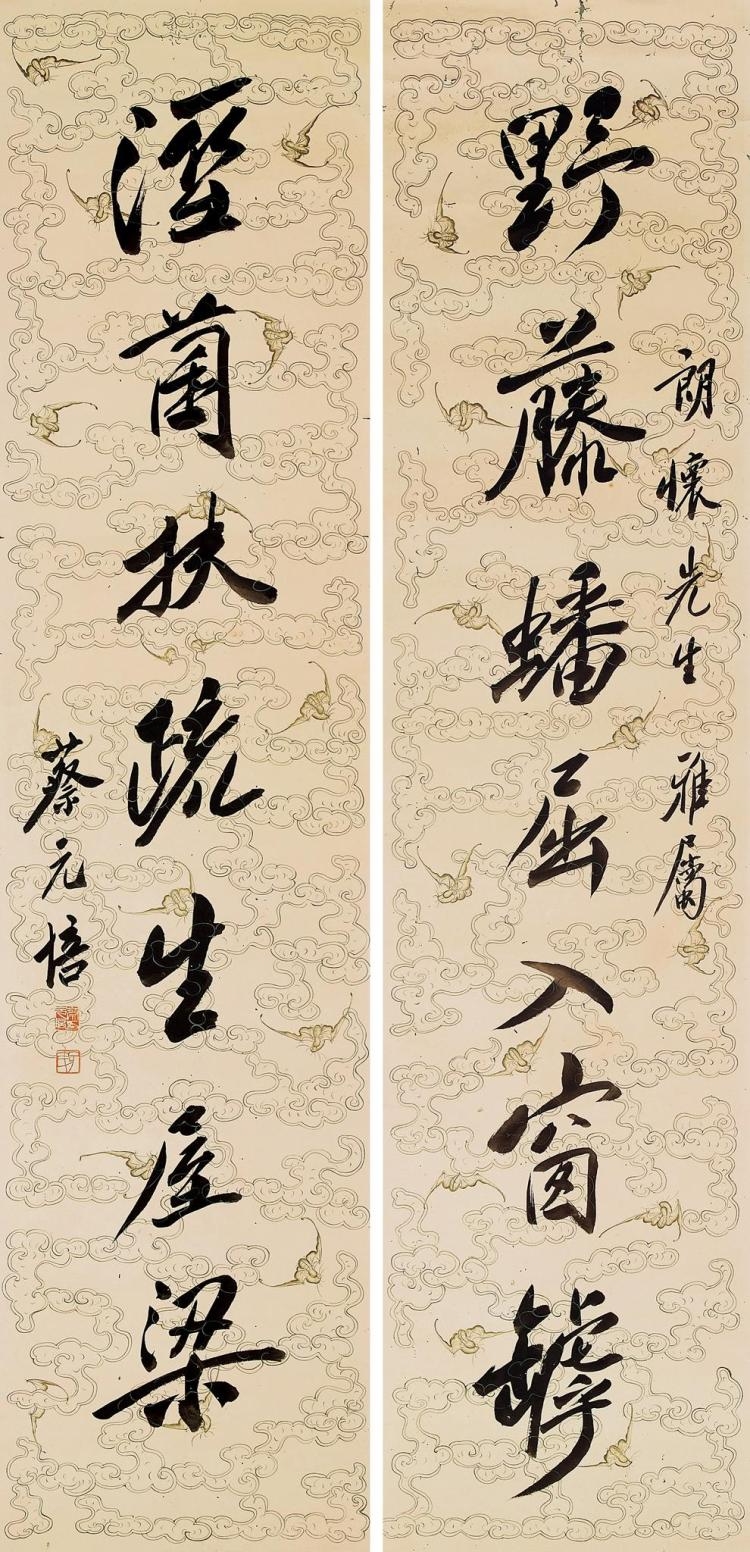 朗懷先生雅屬
野藤蟠屈入窗罅
溼菌扶疏生屋梁
蔡元培